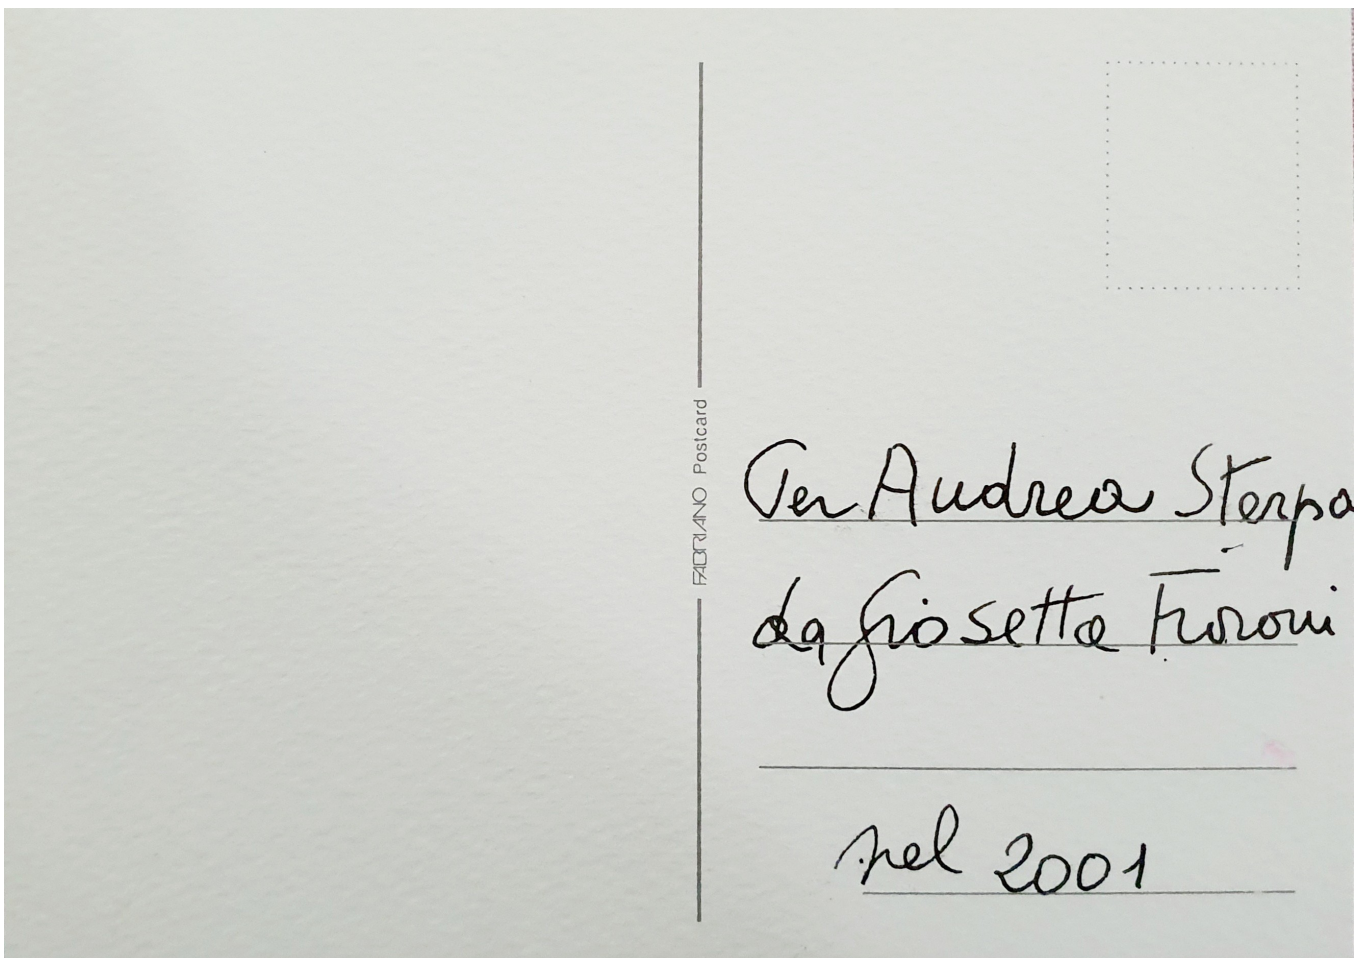 FABRIANO Postcard
Per Andrea Sterpa
da Giosetta Fioroni
nel 2001